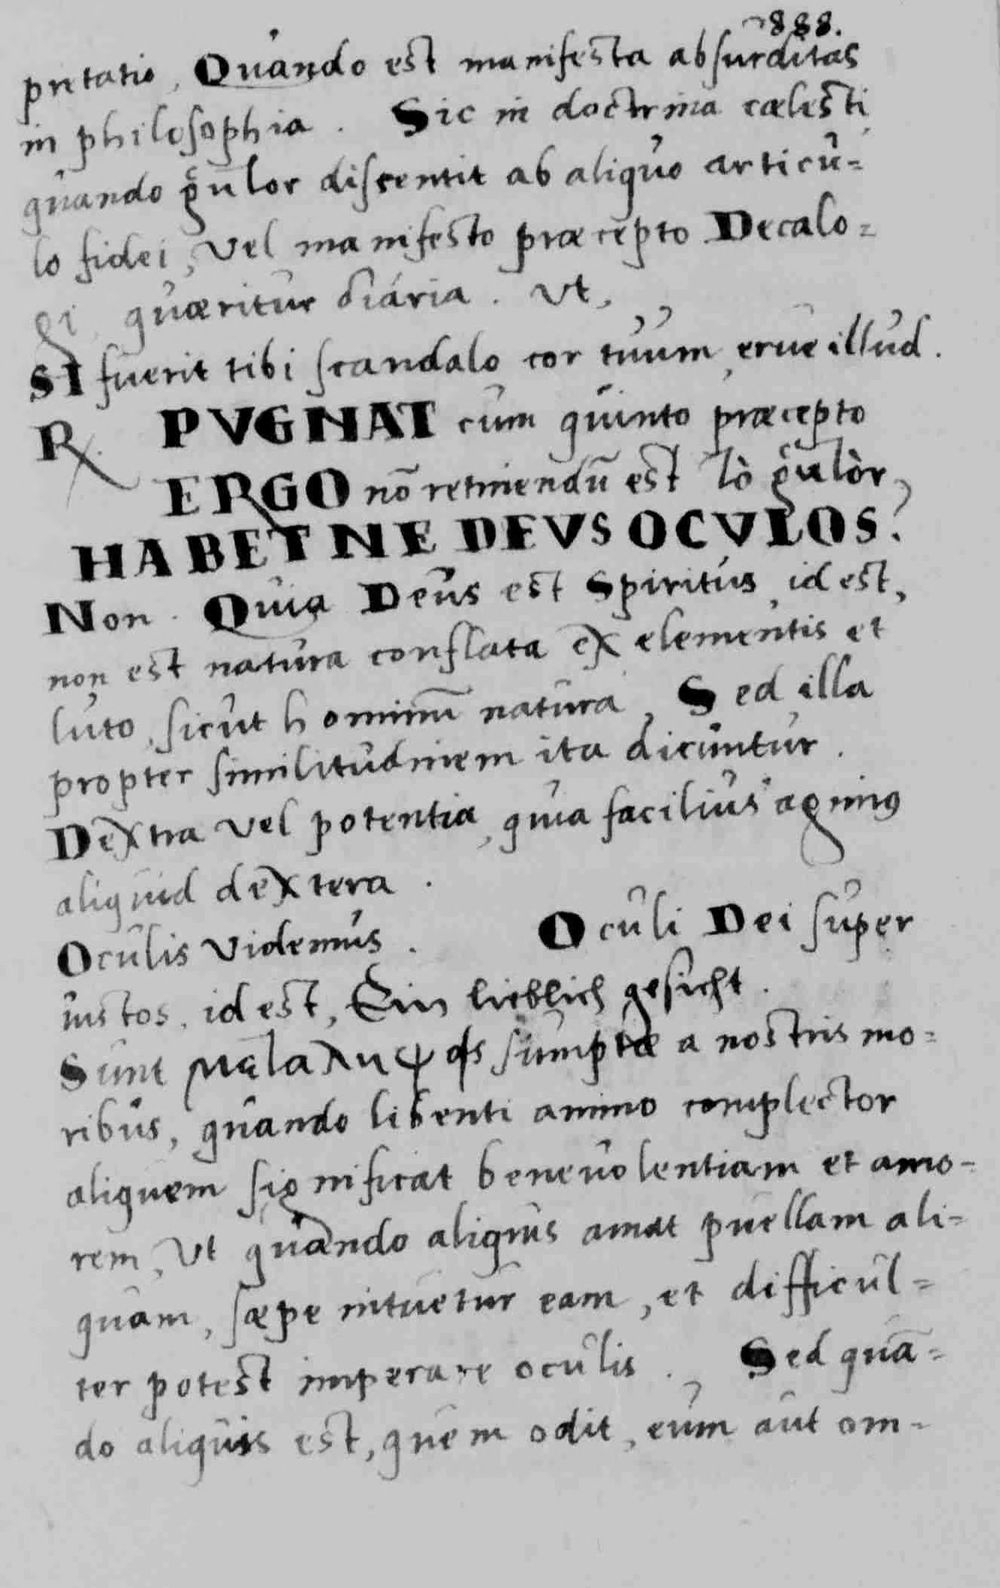 888.
pretatio, Quando est manifesta absurditas
in philosophia. Sic in doctrina cœlesti
quando dissentit ab aliquo articu=
lo fidei, vel manifesto præcepto Decalo=
gi quæritur diaria. Vt,
SI fuerit tibi scandalo cor tuum, erue illud.
R. PVGNAT cum quinto præcepto
ERGO nō retinendū est
HABETNE DEVS OCVLOS?
Non. Quia Deus est Spiritus, id est,
non est natura conflata ex elementis et
luto, sicut hominū natura, Sed illa
propter similitudinem ita dicuntur.
Dextra vel potentia, quia facilius agimus
aliquid dextera.
Oculis videmus. Oculi Dei super
iustos, id est, Ein lieblich gesicht.
Sunt sumptæ a nostris mo=
ribus, quando libenti animo complector
aliquem significat beneuolentiam et amo=
rem, Vt quando aliquis amat puellam ali=
quam, sæpe intuetur eam, et difficul=
ter potest imperare oculis. Sed quā=
do aliquis est, quem odit, eum aut om=